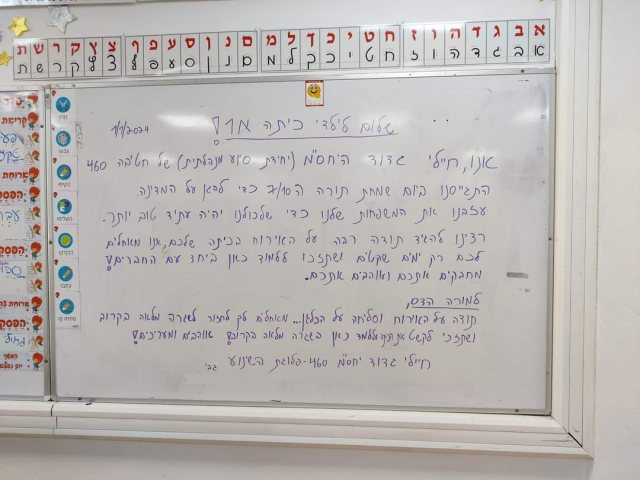 א ב ג ד ה ו ז ח ט י כ ך ל מ ם נ ן ס ע פ ף צ ץ ק ר ש ת
א ב ג ד ה ו ז ח ט י כ ך ל מ ם נ ן ס ע פ ף צ ץ ק ר ש ת
1/1/2024
שלום לילדי כיתה
אנו, חיילי גדוד היחס"מ (יחידת סיוע מנהלתית) של חטיבה 460
התגייסנו ביום שמחת תורה ה 7/10 כדי להגן על המדינה
עזבנו את המשפחות שלנו כדי שלכולנו יהיה עתיד טוב יותר.
רצינו להגיד תודה רבה על האירוח בכיתה שלכם, אנו מאחלים
לכם רק ימים שקטים ושתזכו ללמוד כאן ביחד עם החברים
מחבקים אתכם ואוהבים אתכם.
למורה הדס,
תודה על האירוח וסליחה על הבלגן... מאחלים לך לחזור לשגרה מלאה בקרוב
ושתזכי לקשט את וללמד כאן בשגרה מלאה בקרוב אוהבים ומעריכים
חיילי גדוד יחס"מ 460-פלוגת השינוע
קריאת
ארוחת
הפסקה